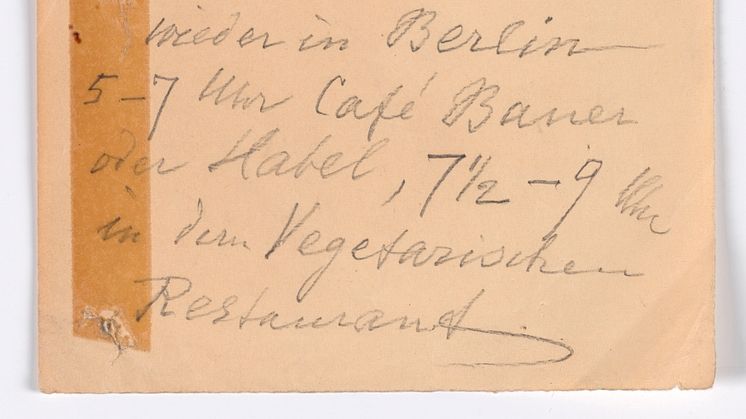 wieder in Berlin
5–7 Uhr Café Bauer
oder Habel, 7½ – 9 Uhr
in dem Vegetarischen
Restaurant